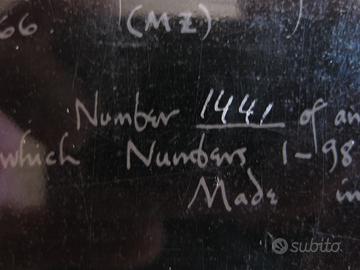 66. (MZ)
Number 1441 of an
which Numbers 1-98
Made in
subito